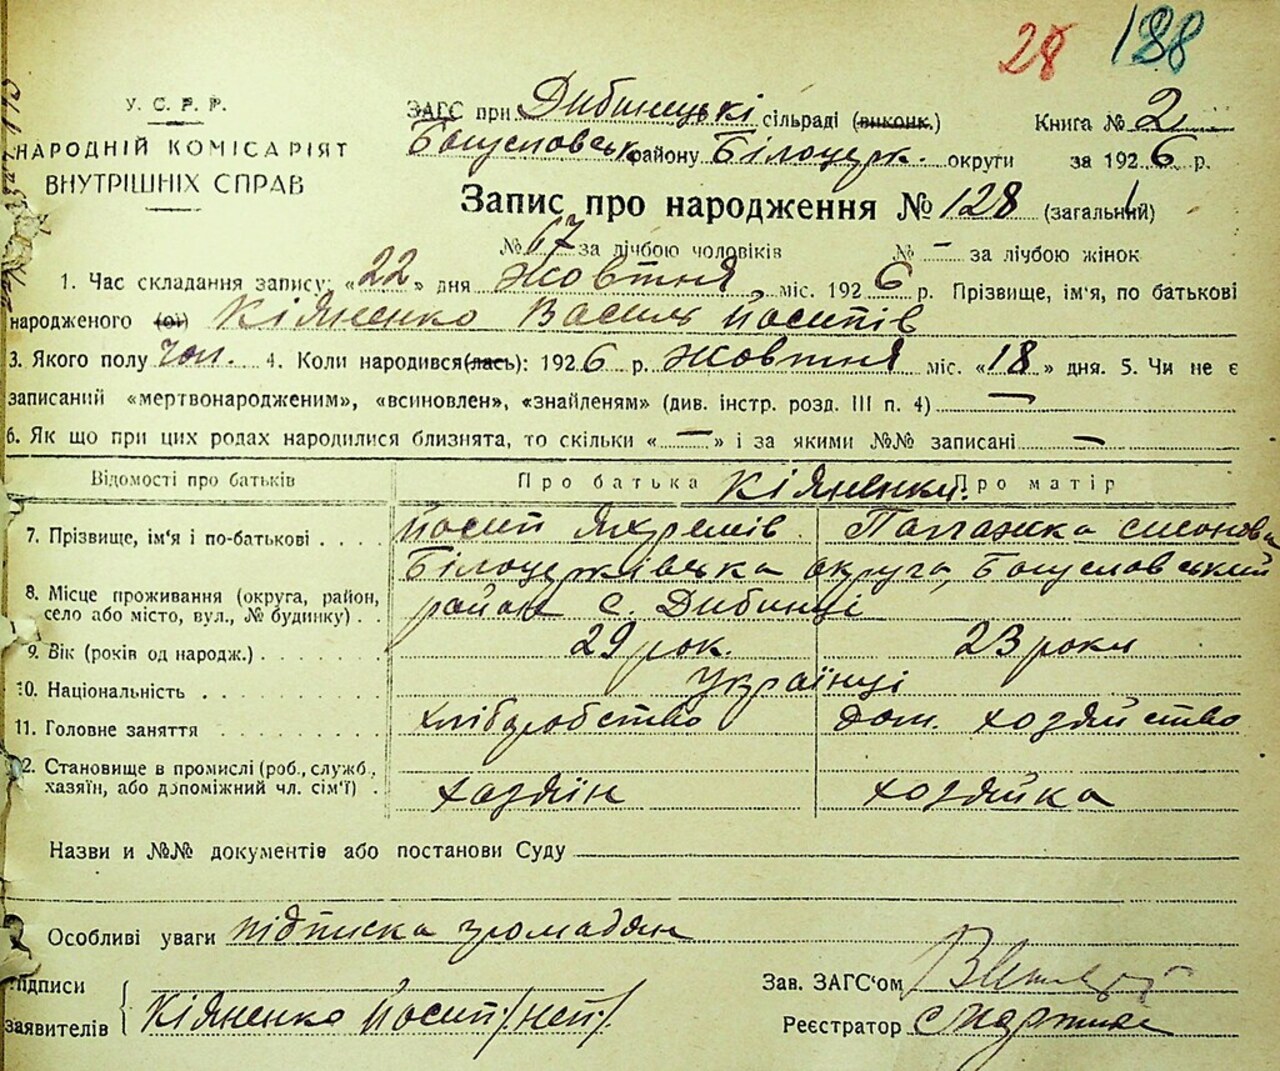 28 188
У. С. Р. Р.
НАРОДНІЙ КОМІСАРІЯТ
ВНУТРІШНІХ СПРАВ
ЗАГС при Дибинецькі сільраді (виконк.) Книга № 2
Богуславськ району Білоцерк. округи за 1926 р.
Запис про народження № 128 (загальний)
№ 67 за лічбою чоловіків № — за лічбою жінок
1. Час складання запису: «22» дня жовтня міс. 1926 р. Прізвище, ім'я, по батькові
народженого (ої) Кіяненко Василь Йосипів
3. Якого полу чол. 4. Коли народився(лась): 1926 р. жовтня міс. «18» дня. 5. Чи не є
записаний «мертвонародженим», «всиновлен», «знайденям» (див. інстр. розд. III п. 4) —
6. Як що при цих родах народилися близнята, то скільки «—» і за якими №№ записані —
Відомості про батьків Про батька Кіяненки Про матір
7. Прізвище, ім'я і по-батькові . . . . Йосип Яхремів Палажка Симонова
8. Місце проживання (округа, район, Білоцерківська округа, Богуславський
село або місто, вул., № будинку) . . район с. Дибинці
9. Вік (років од народж.) . . . . . . . 29 рок. 23 роки
10. Національність . . . . . . . . . . Українці
11. Головне заняття . . . . . . . . . хліборобство дом. хозяйство
12. Становище в промислі (роб., служб.,
хазяїн, або допоміжний чл. сім'ї) . хозяїн хозяйка
Назви и №№ документів або постанови Суду
Особливі уваги підписка громадян
Підписи Зав. ЗАГС'ом
заявителів Кіяненко Йосип /неп/. Реєстратор